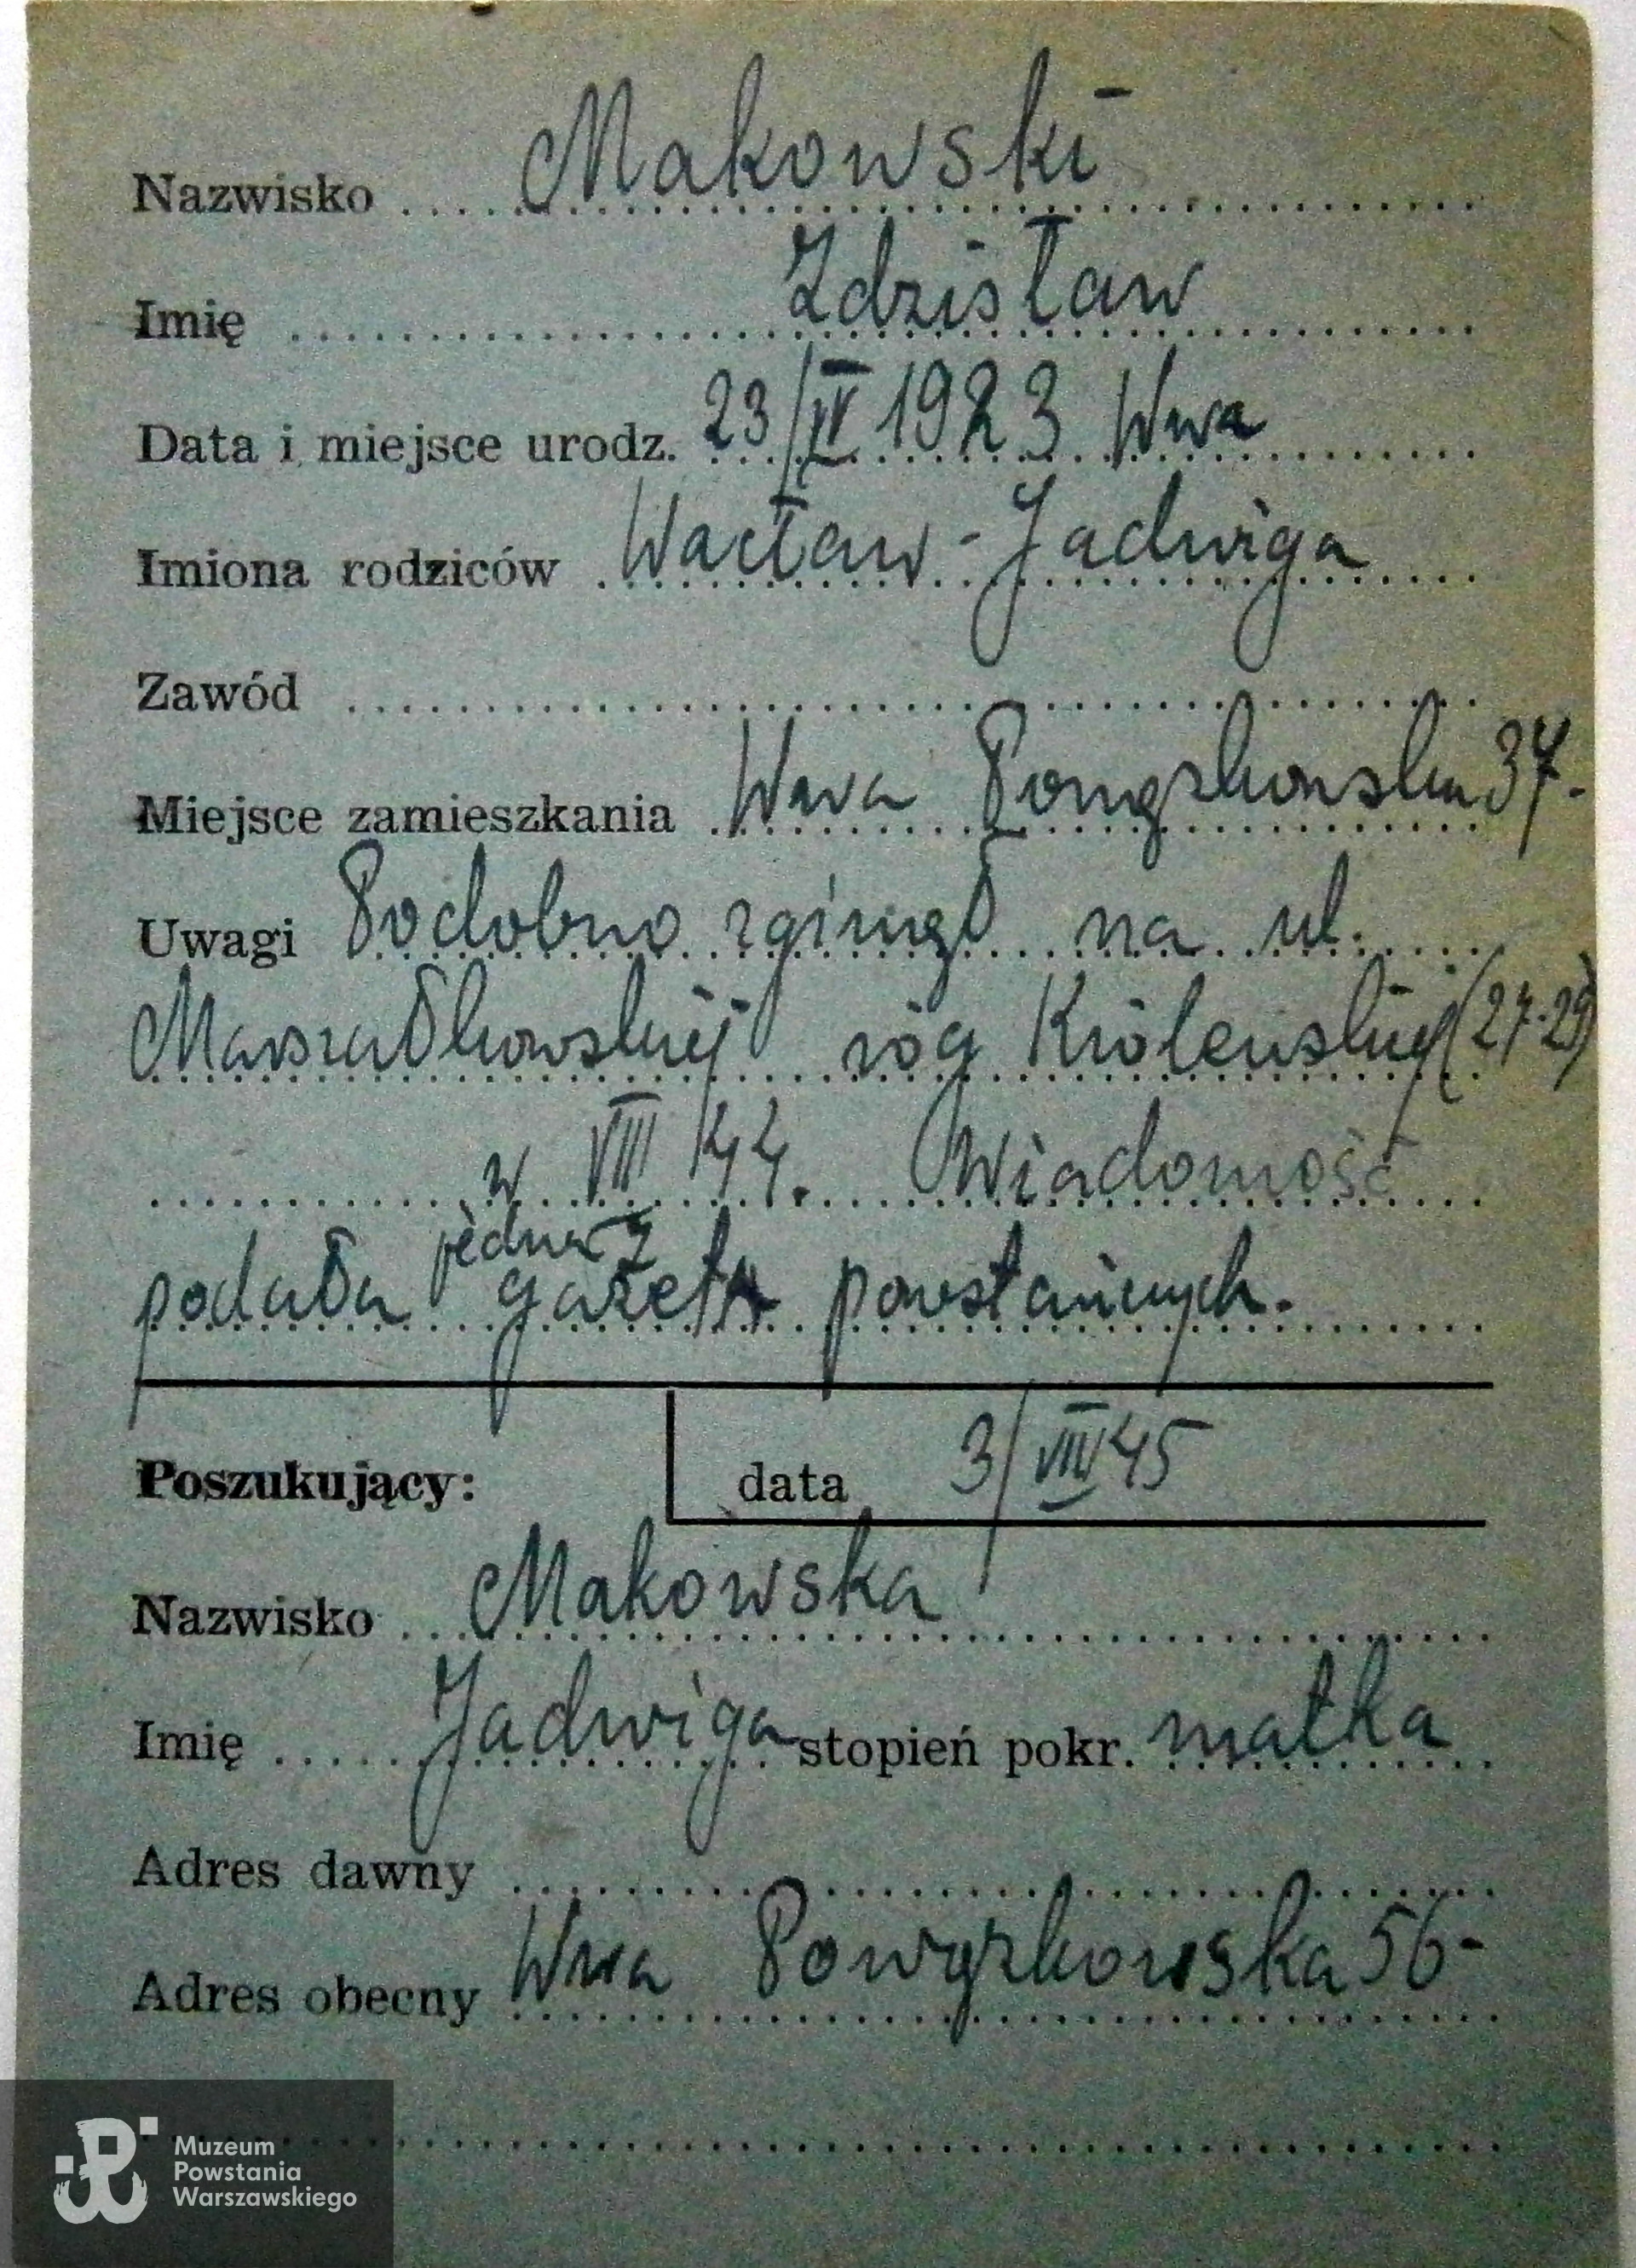 Nazwisko Makowski
Imię Zdzisław
Data i miejsce urodz. 23/IV 1923 Wwa
Imiona rodziców Wacław - Jadwiga
Zawód
Miejsce zamieszkania Wwa Powązkowska 37-
Uwagi Podobno zginął na ul.
Marszałkowskiej róg Królewskiej (27-29)
w VIII 44. Wiadomość
jedna z
podała gazet powstańczych.
Poszukujący: data 3/VIII 45
Nazwisko Makowska
Imię Jadwiga stopień pokr. matka
Adres dawny
Adres obecny Wwa Powązkowska 56-
Muzeum
Powstania
Warszawskiego